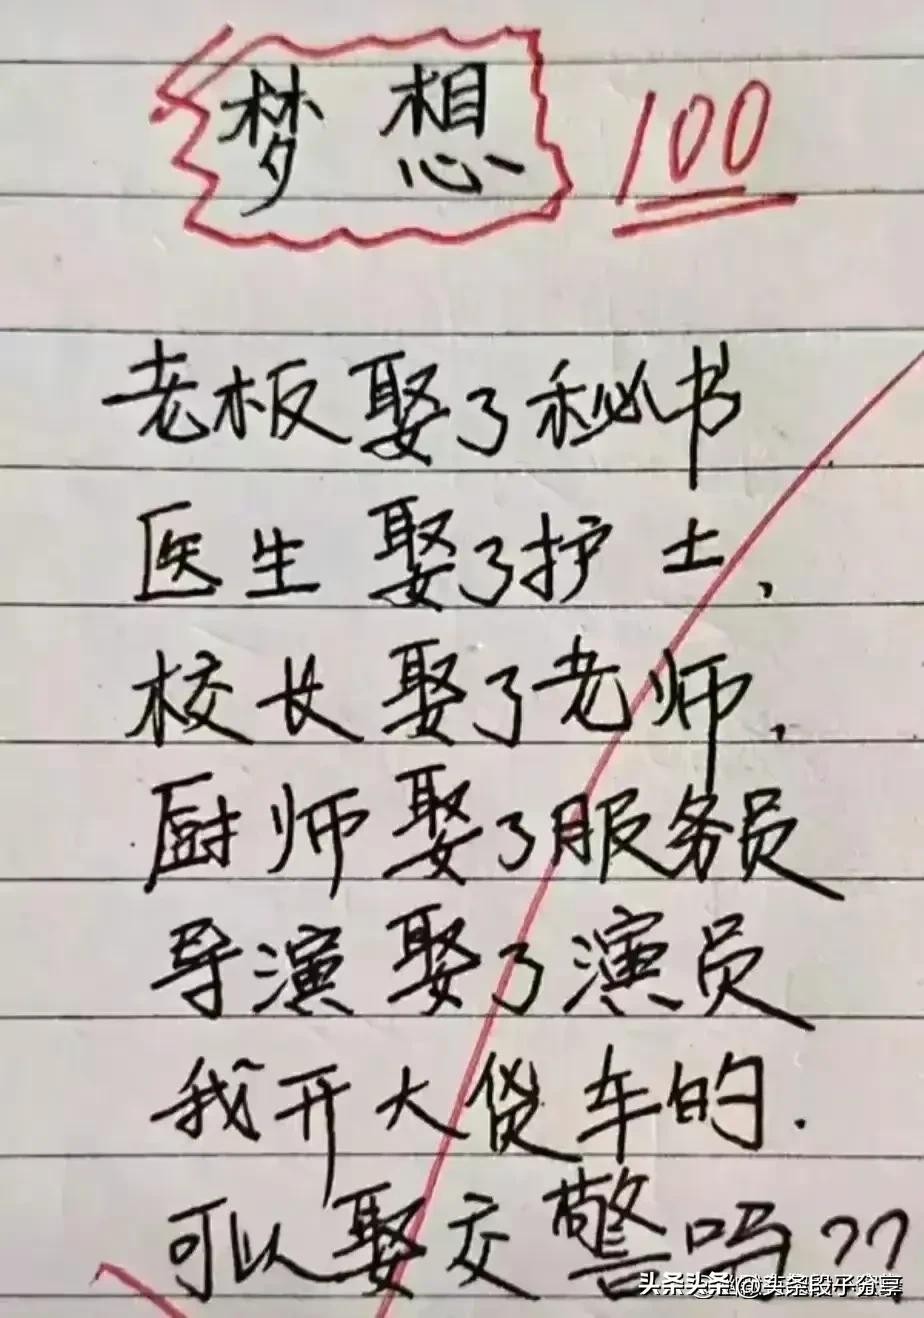 梦想 100
老板娶了秘书
医生娶了护士,
校长娶了老师,
厨师娶了服务员
导演娶了演员
我开大货车的.
可以娶交警吗??
头条头条 @头条段子分享